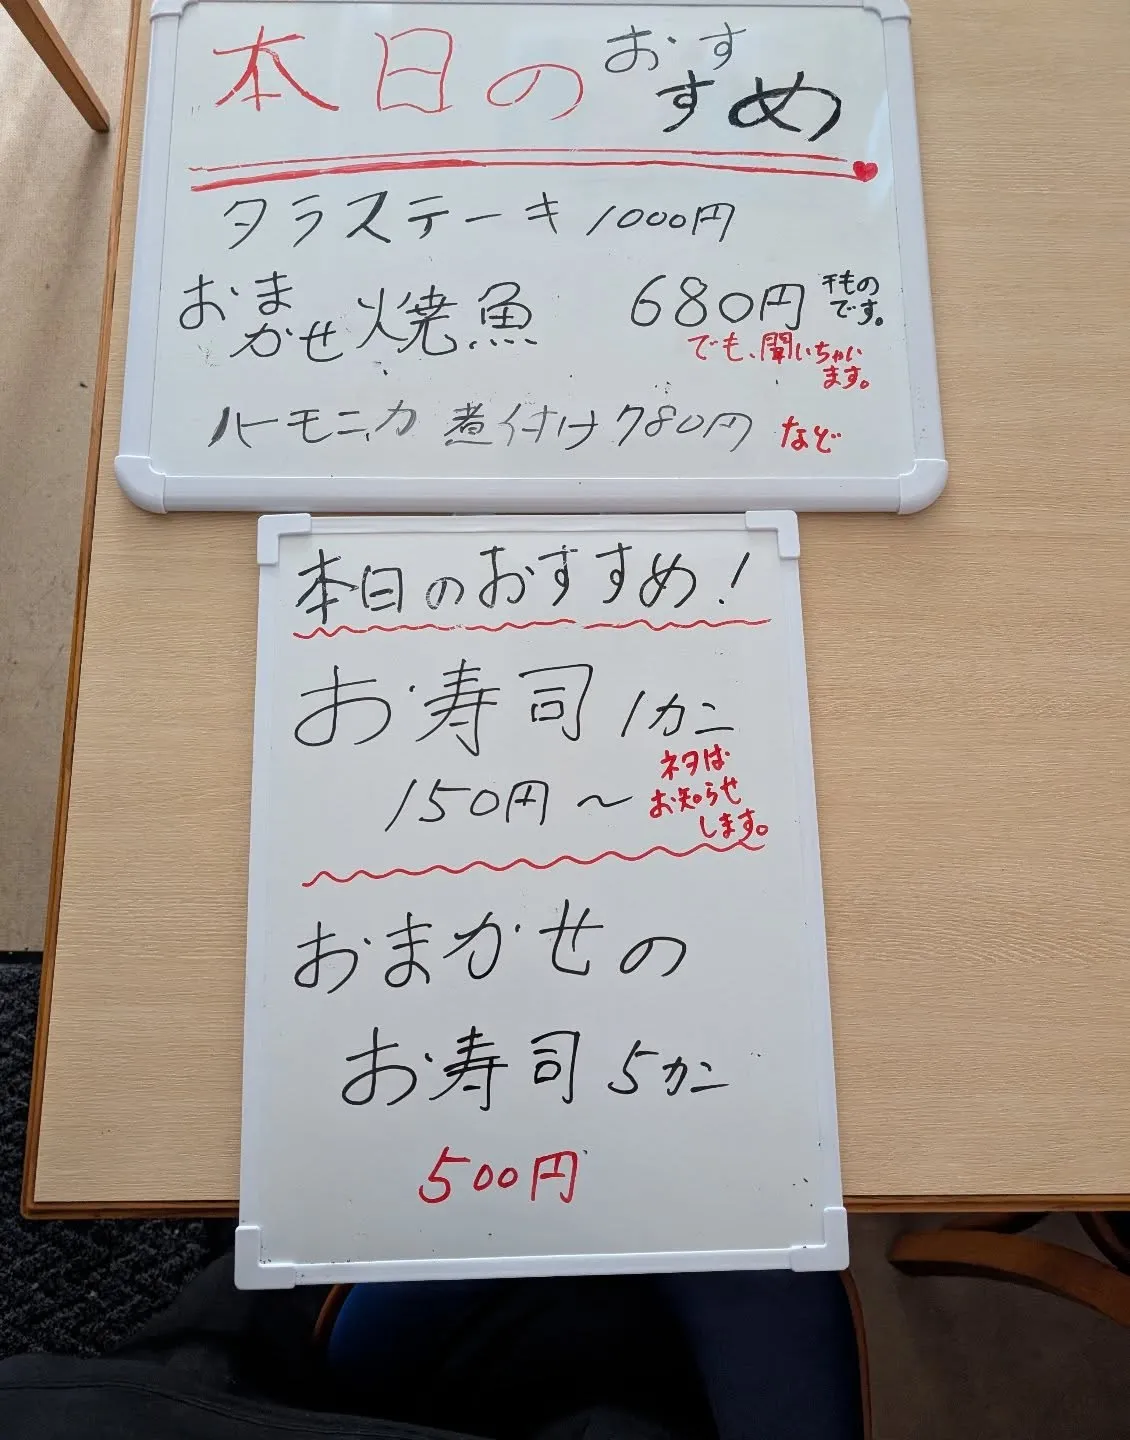 本日のおすすめ
タラステーキ 1000円
おまかせ焼魚 680円 干ものです。
でも、聞いちゃいます。
ハーモニカ 煮付け 780円 など
本日のおすすめ!
お寿司 1カン
150円〜 ネタはお知らせします。
おまかせの
お寿司 5カン
500円